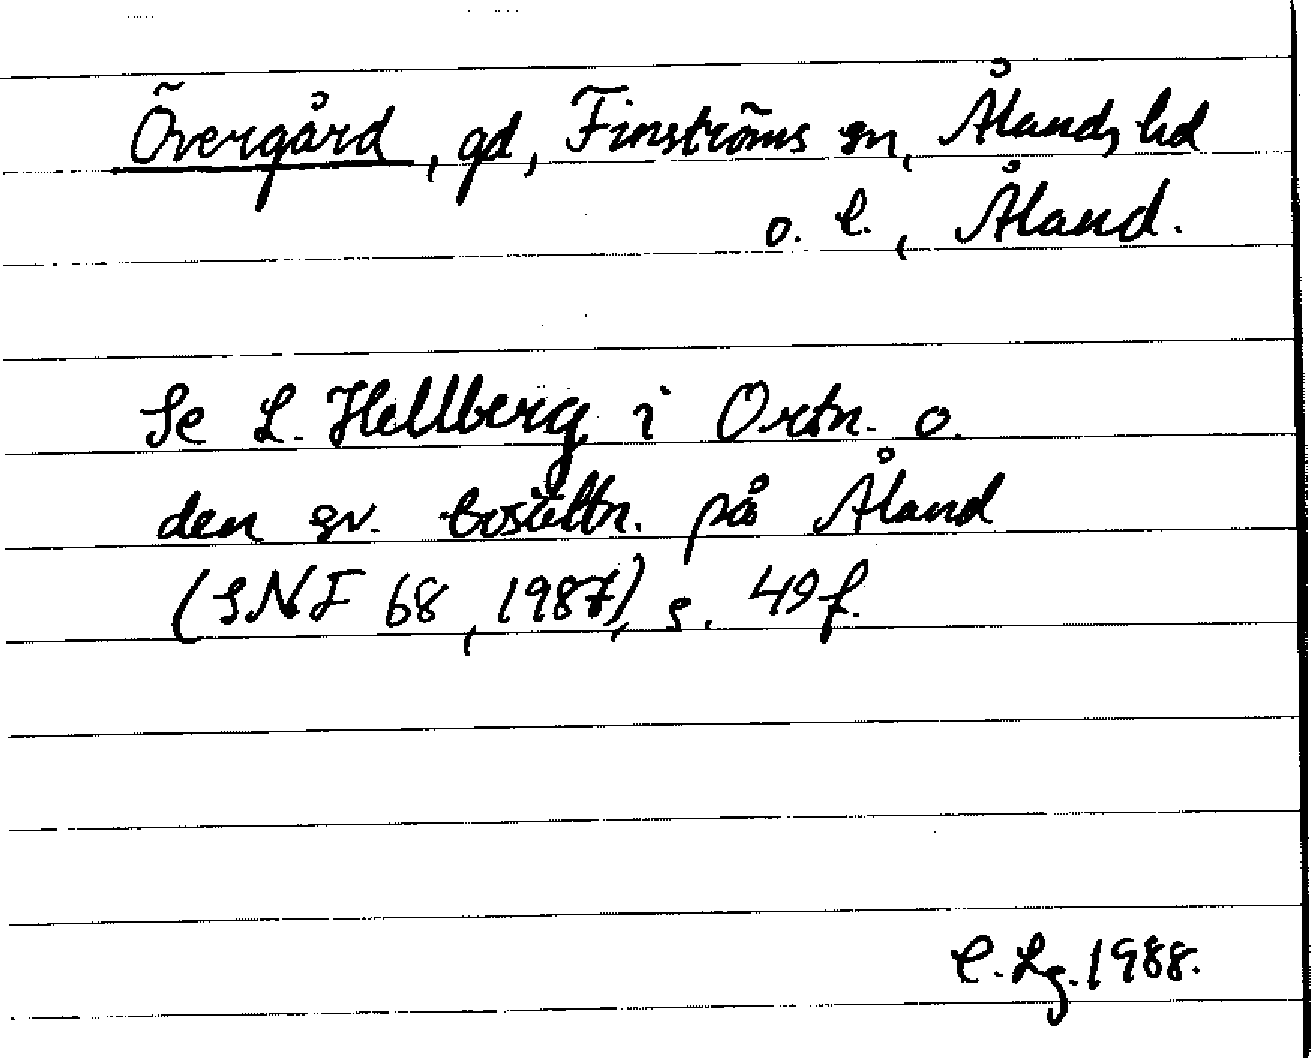 Övergård, gd, Finströms sn, Ålands hd
o. l., Åland.
Se L. Hellberg i Ortn. o.
den sv. bosättn. på Åland
(SNF 68, 1987), s. 49 f.
C. Lg. 1988.